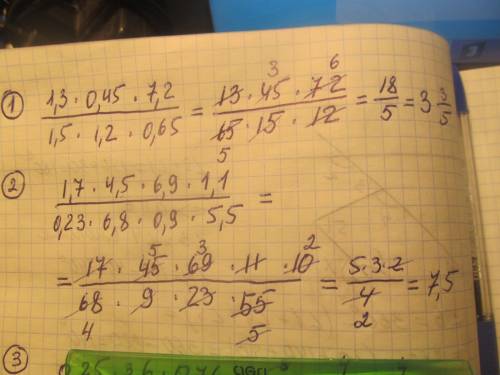 ① (1,3 · 0,45 · 7,2)/(1,5 · 1,2 · 0,65) = (13 · 45 3 · 72 6)/(65 5 · 15 · 12) = 18/5 = 3 3/5
② (1,7 · 4,5 · 6,9 · 1,1)/(0,23 · 6,8 · 0,9 · 5,5) =
= (17 · 45 5 · 69 3 · 11 · 10 2)/(68 4 · 9 · 23 · 55 5) = (5 · 3 · 2)/(4 2) = 7,5
③